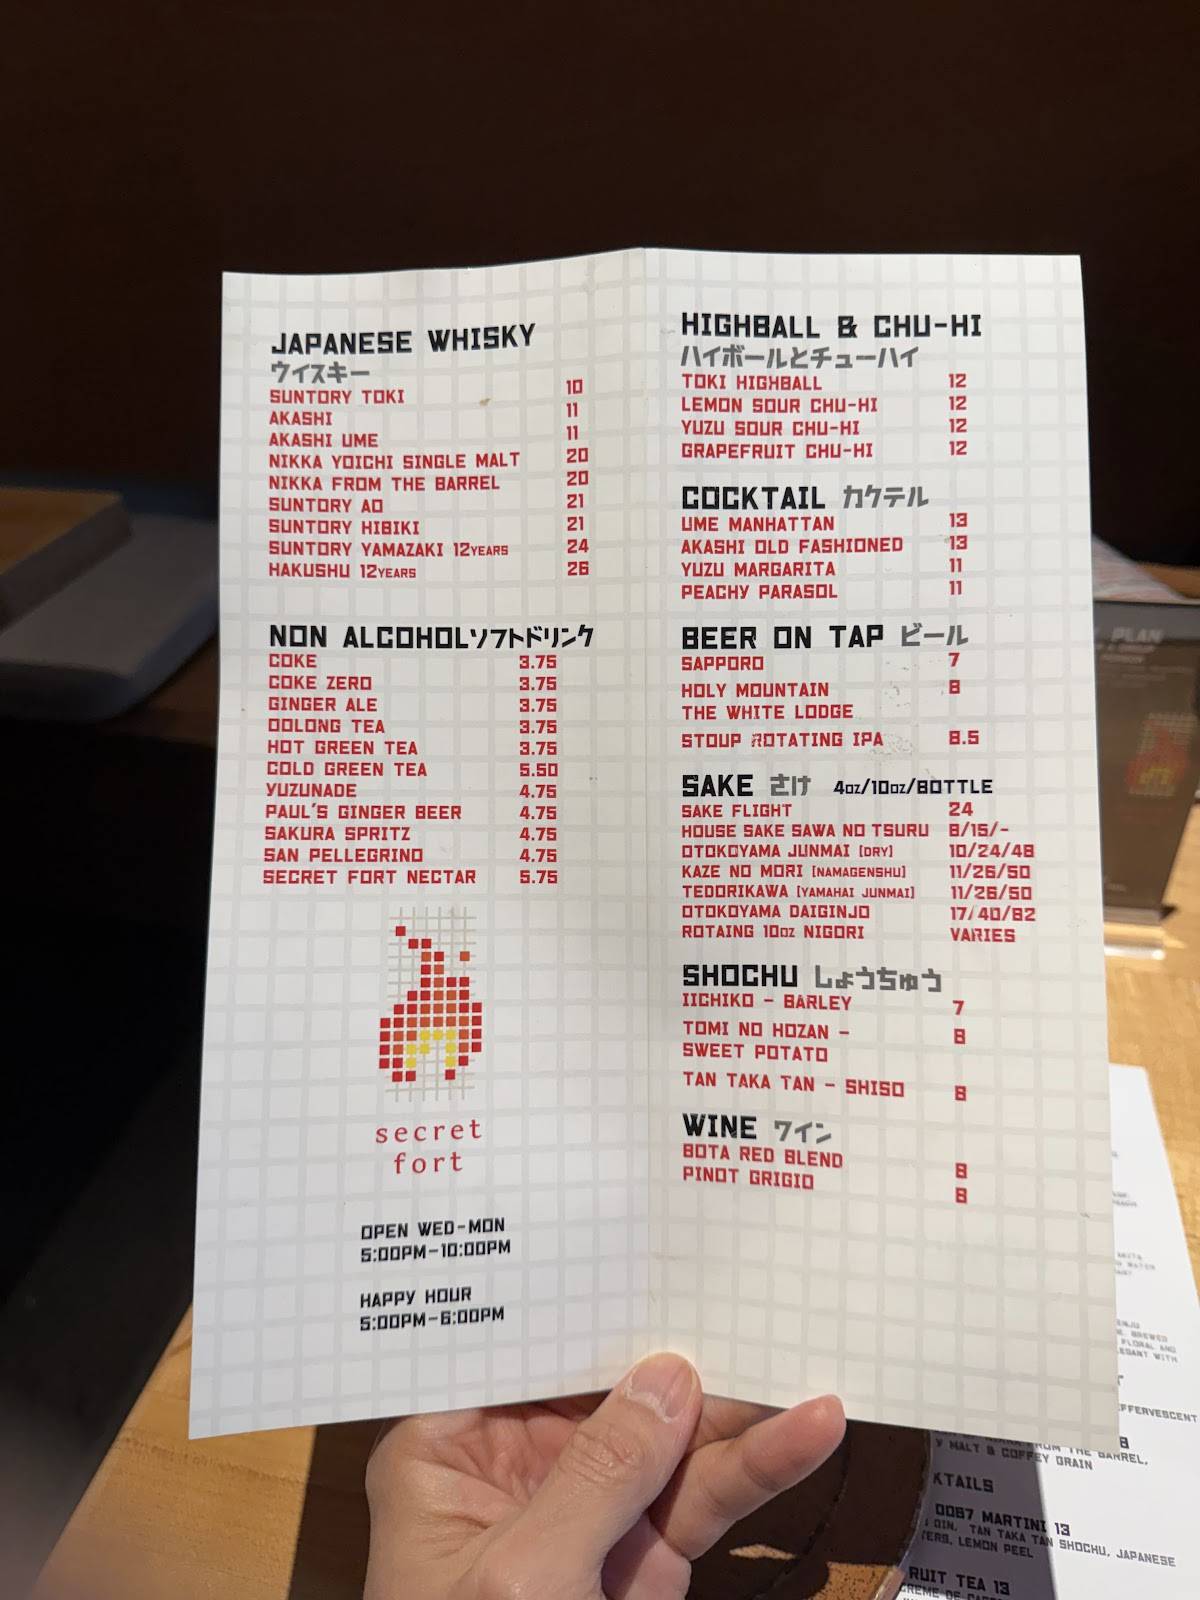 JAPANESE WHISKY
ウイスキー
SUNTORY TOKI 10
AKASHI 11
AKASHI UME 11
NIKKA YOICHI SINGLE MALT 20
NIKKA FROM THE BARREL 20
SUNTORY AO 21
SUNTORY HIBIKI 21
SUNTORY YAMAZAKI 12YEARS 24
HAKUSHU 12YEARS 26
NON ALCOHOLソフトドリンク
COKE 3.75
COKE ZERO 3.75
GINGER ALE 3.75
OOLONG TEA 3.75
HOT GREEN TEA 3.75
COLD GREEN TEA 5.50
YUZUNADE 4.75
PAUL'S GINGER BEER 4.75
SAKURA SPRITZ 4.75
SAN PELLEGRINO 4.75
SECRET FORT NECTAR 5.75
secret
fort
OPEN WED-MON
5:00PM-10:00PM
HAPPY HOUR
5:00PM-6:00PM
HIGHBALL & CHU-HI
ハイボールとチューハイ
TOKI HIGHBALL 12
LEMON SOUR CHU-HI 12
YUZU SOUR CHU-HI 12
GRAPEFRUIT CHU-HI 12
COCKTAIL カクテル
UME MANHATTAN 13
AKASHI OLD FASHIONED 13
YUZU MARGARITA 11
PEACHY PARASOL 11
BEER ON TAP ビール
SAPPORO 7
HOLY MOUNTAIN 8
THE WHITE LODGE
STOUP ROTATING IPA 8.5
SAKE さけ 4OZ/10OZ/BOTTLE
SAKE FLIGHT 24
HOUSE SAKE SAWA NO TSURU 8/15/-
OTOKOYAMA JUNMAI [DRY] 10/24/48
KAZE NO MORI [NAMAGENSHU] 11/26/50
TEDORIKAWA [YAMAHAI JUNMAI] 11/26/50
OTOKOYAMA DAIGINJO 17/40/82
ROTAING 10OZ NIGORI VARIES
SHOCHU しょうちゅう
IICHIKO - BARLEY 7
TOMI NO HOZAN - 8
SWEET POTATO
TAN TAKA TAN - SHISO 8
WINE ワイン
BOTA RED BLEND 8
PINOT GRIGIO 8
PLAN
BREWED
FLORAL AND
WITH
EFFERVESCENT
8
FROM THE BARREL,
MALT & COFFEY GRAIN
KTAILS
OOB7 MARTINI 13
GIN, TAN TAKA TAN SHOCHU, JAPANESE
LEMON PEEL
RUIT TEA 13
CREME DE